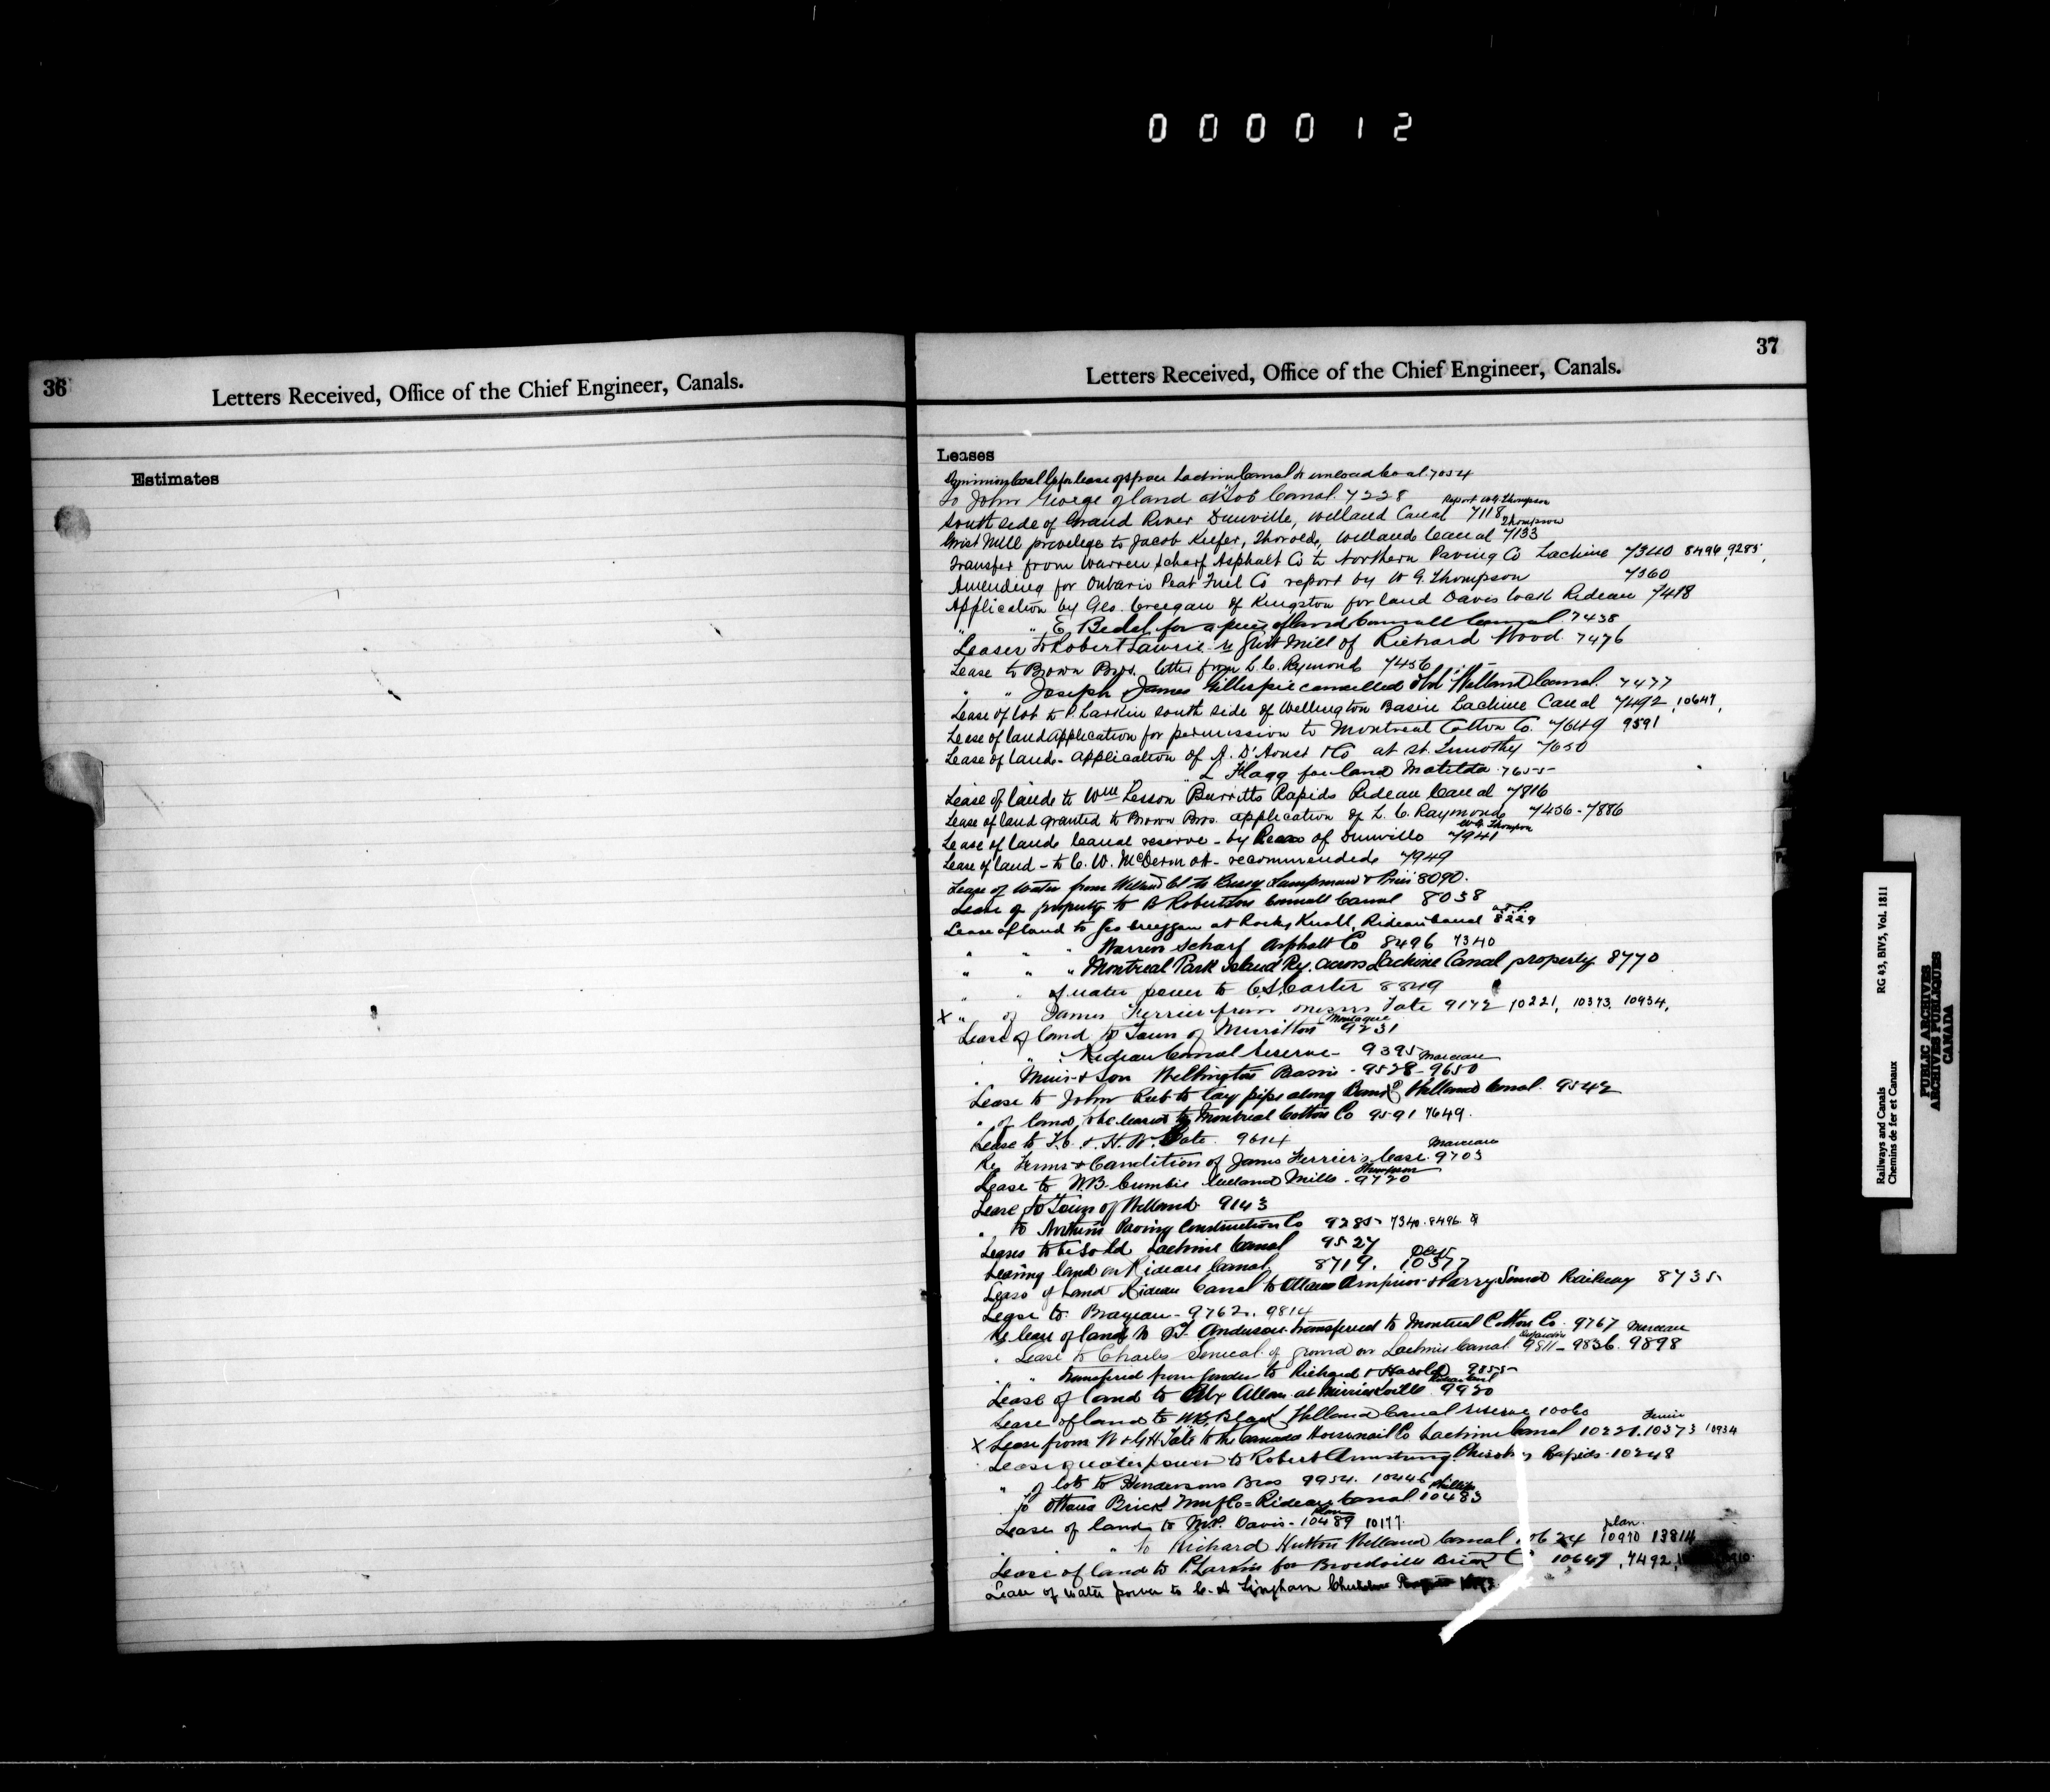 000012
36
Letters Received, Office of the Chief Engineer, Canals.
Estimates
37
Letters Received, Office of the Chief Engineer, Canals.
Leases
Dominion Coal Co for lease of space Lachine Canal to unload Coal. 7054
to John George of land at Canal. 7228
South side of Grand River Dunville, Welland Canal 7118 Report W.G. Thompson
Grist Mill privelege to Jacob Keefer, Thorold, Welland Canal 7133 Thompson
Transfer from Warren Scharf Asphalt Co to Northern Paving Co Lachine 7340 8496, 9285,
Amending for Ontario Peat Fuel Co report by W G. Thompson 7360
Application by Geo. Creegan of Kingston for land Davis Lock Rideau 7418
" " E. Bedel for a piece of land Cornwall Canal. 7438
Leases to Robert Lawrie re Grist Mill of Richard Wood. 7476
Lease to Brown Bros. letter from L. C. Raymond 7456
" " Joseph & James Gillespie cancelled Welland Canal. 7477
Lease of lot to P. Larkin south side of Wellington Basin Lachine Canal 7492, 10647,
Lease of land application for permission to Montreal Cotton Co. 7649 9591
Lease of land - application of A. D'Aoust & Co at St. Timothy 7650
" L Flagg for land Matilda. 7655
Lease of land to Wm Lesson Burritts Rapids Rideau Canal 7816
Lease of land granted to Brown Bros. application of L. C. Raymond 7456-7886
Lease of land Canal reserve - by of Dunville 7941 W.G. Thompson
Lease of land - to C. W. McDermot - recommended 7949
Lease of water from Welland Cl to Lampman & 8090.
Lease of property to Robertson Cornwall Canal 8038
Lease of land to Geo Creeggan at Rocky Knoll, Rideau Canal 8229
" " " Warren Scharf Asphalt Co 8496 7340
" " " Montreal Park Island Ry. across Lachine Canal property 8770
" " of water power to C.S. Carter 8849
X " of James Ferrier from Messrs Tate 9172 10221, 10373, 10934,
Lease of land to Town of Merritton 9231 Montague
" " Rideau Canal reserve - 9395
" Muir & Son Wellington Basin - 9528-9650 Marceau
Lease to John to lay pipe along Bank of Welland Canal. 9542
" of land to be leased to Montreal Cotton Co 9591 7649.
Lease to & H. W. 9614
Re Terms & Condition of James Ferrier's lease. 9703 Marceau
Lease to W.B. Cumbie Welland Mills - 9720 Thompson
Lease to Town of Welland 9143
" to Northern Paving Construction Co 9285- 7340. 8496.
Leases to be sold Lachine Canal 9527
Leasing land on Rideau Canal 8719. 10377
Lease of land Rideau Canal to Ottawa Arnprior & Parry Sound Railway 8735
Lease to Brayeau - 9762. 9814
Re lease of land to Anderson transferred to Montreal Cotton Co. 9767 Marceau
" Lease to Charles Senecal of ground on Lachine Canal 9811- 9836. 9898
" " Transferred from to Richard & Harold 9855
Lease of land to Alex Allan at Merrickville 9920
Lease of land to Welland Canal reserve 10060
X Lease from W & G H Tate to the Canada Horsenail Co Lachine Canal 10221. 10373 10934
Lease of water power to Robert Armstrong Chisholm's Rapids. 10248
" of lots to Hendersons Bros 9954. 10446
" to Ottawa Brick Mnf Co - Rideau Canal. 10483 Phillips
Lease of land to M.P. Davis - 10489 10177. Plan
" " to Richard Hutton Welland Canal lot 24 10970 13814 plan.
Lease of land to P. Larkin for Brockville Co 10647, 7492,
Lease of water power to C. A Lingham
Railways and Canals
Chemins de fer et Canaux
RG 43, BIV5, Vol. 1811
PUBLIC ARCHIVES
ARCHIVES PUBLIQUES
CANADA